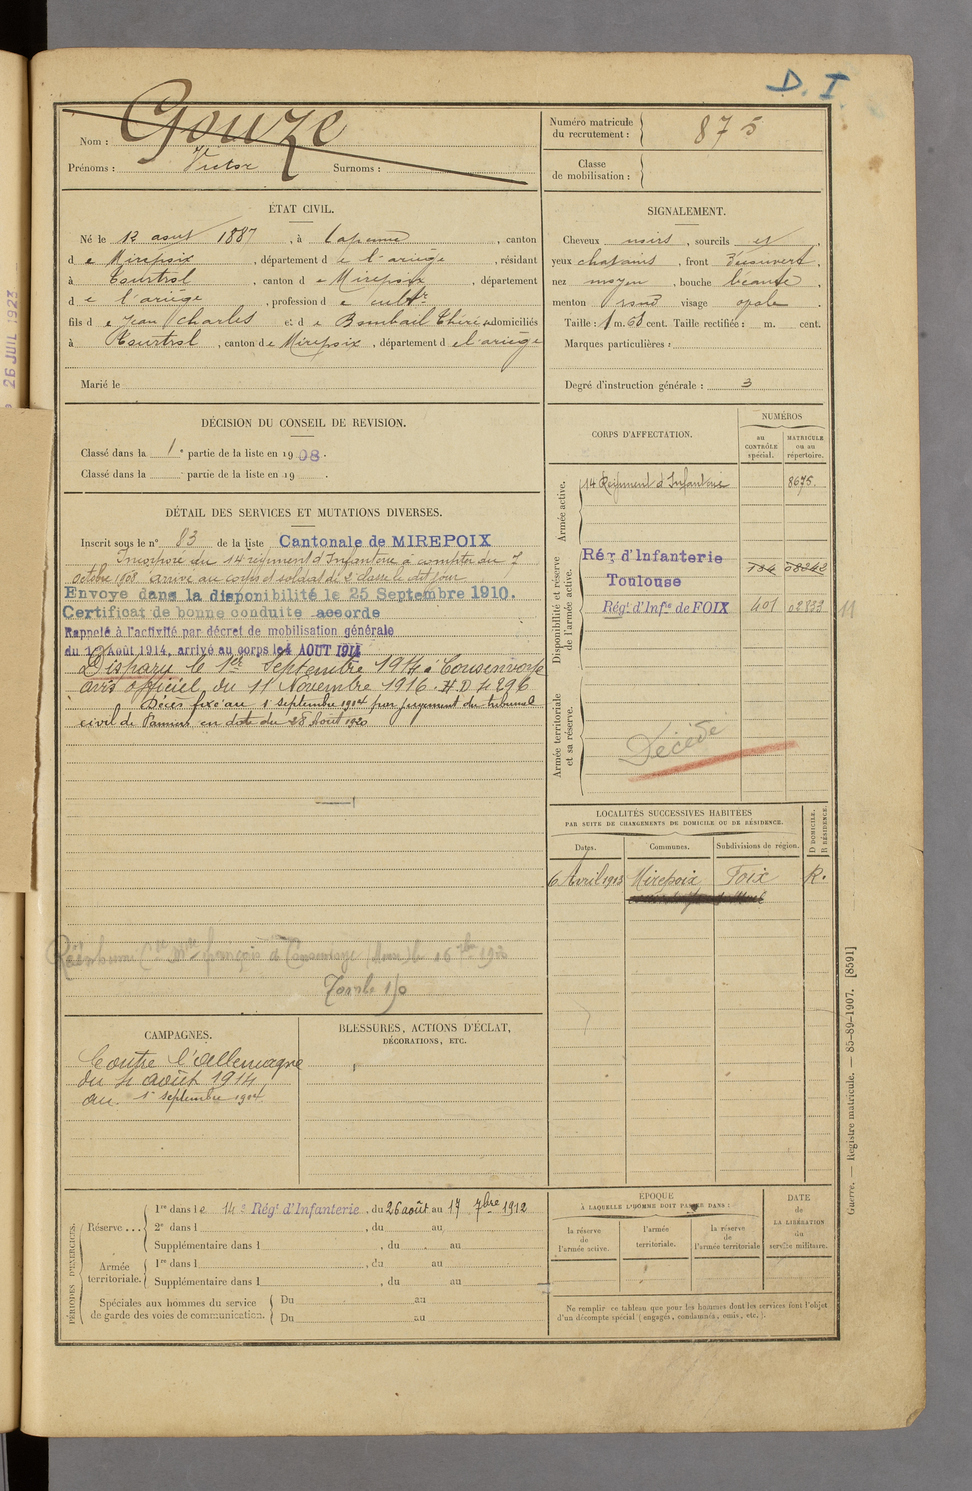 D. I
Nom : Gouze
Prénoms : Victor Surnoms :
Numéro matricule
du recrutement : 875
Classe
de mobilisation :
ÉTAT CIVIL.
Né le 12 aout 1887, à Lapenne, canton
d e Mirepoix, département d e l'ariège, résidant
à Tourtrol, canton d e Mirepoix, département
d e l'ariège, profession d e cultr
fils d e Jean Charles et d e Bombail domiciliés
à Tourtrol, canton de Mirepoix, département d el'ariège
Marié le
SIGNALEMENT.
Cheveux noirs, sourcils et,
yeux chatains, front découvert,
nez moyen, bouche béante,
menton rond visage opale.
Taille : 1 m. 68 cent. Taille rectifiée : m. cent.
Marques particulières :
Degré d'instruction générale : 3
DÉCISION DU CONSEIL DE REVISION.
Classé dans la 1e partie de la liste en 1908.
Classé dans la partie de la liste en 19 .
DÉTAIL DES SERVICES ET MUTATIONS DIVERSES.
Inscrit sous le n° 83 de la liste Cantonale de MIREPOIX
Incorporé au 14 régiment d'Infanterie à compter du 7
octobre 1908 arrivé au corps et soldat de 2 classe le dit jour
Envoye dans la disponibilité le 25 Septembre 1910.
Certificat de bonne conduite accorde
Rappelé à l'activité par décret de mobilisation générale
du 1er Août 1914, arrivé au corps le 4 AOUT 1914
Disparu le 1er Septembre 1914 à Consenvoye
avis officiel du 11 Novembre 1916. H.D 4296
Décès fixé au 1 septembre 1914 par jugement du tribunal
civil de Pamiers en date du 28 Août 1920
Réinhumé français à Consenvoye (Meuse) le 16
Tombe 190
CORPS D'AFFECTATION.
NUMÉROS
au
CONTRÔLE
spécial.
MATRICULE
ou au
répertoire.
Armée active.
14 Régiment d'Infanterie 8675.
Disponibilité et réserve
de l'armée active.
Rég d'Infanterie
Toulouse
134 08242
Régt d'Infie de FOIX 401 02833 11
Armée territoriale
et sa réserve.
Décédé
LOCALITÉS SUCCESSIVES HABITÉES
PAR SUITE DE CHANGEMENTS DE DOMICILE OU DE RÉSIDENCE.
Dates. Communes. Subdivisions de région. D DOMICILE. R RÉSIDENCE.
6 Avril 1913 Mirepoix Foix R.
CAMPAGNES.
Contre l'Allemagne
du 4 août 1914
au 1er septembre 1914
BLESSURES, ACTIONS D'ÉCLAT,
DÉCORATIONS, ETC.
PÉRIODES D'EXERCICES.
Réserve...
1re dans le 14e Régt d'Infanterie, du 26 août au 17 7bre 1912
2e dans l , du au
Supplémentaire dans l , du au
Armée
territoriale.
1re dans l , du au
Supplémentaire dans l , du au
Spéciales aux hommes du service
de garde des voies de communication.
Du au
Du au
ÉPOQUE
À LAQUELLE L'HOMME DOIT PASSER DANS :
la réserve
de
l'armée active.
l'armée
territoriale.
la réserve
de
l'armée territoriale
DATE
de
LA LIBÉRATION
du
service militaire.
Ne remplir ce tableau que pour les hommes dont les services font l'objet
d'un décompte spécial (engagés, condamnés, omis, etc.).
Guerre. — Registre matricule. — 85-89-1907. [8591]
26 JUIL 1923